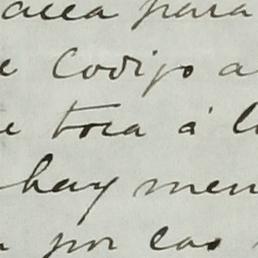 para
Codigo a
toca á l
hay men
por las